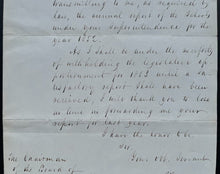 transmitting to me, as required by
law, the annual report of the Schools
under your Superintendence for the
year 1862.
As I shall be under the necessity
of withholding the legislative ap-
portionment for 1863 until a sat-
isfactory report shall have been
received, I will thank you to lose
no time in forwarding me your
report for last year.
I have the honor to be
Sir,
Your Obt. Servant
The Chairman
of the Board of